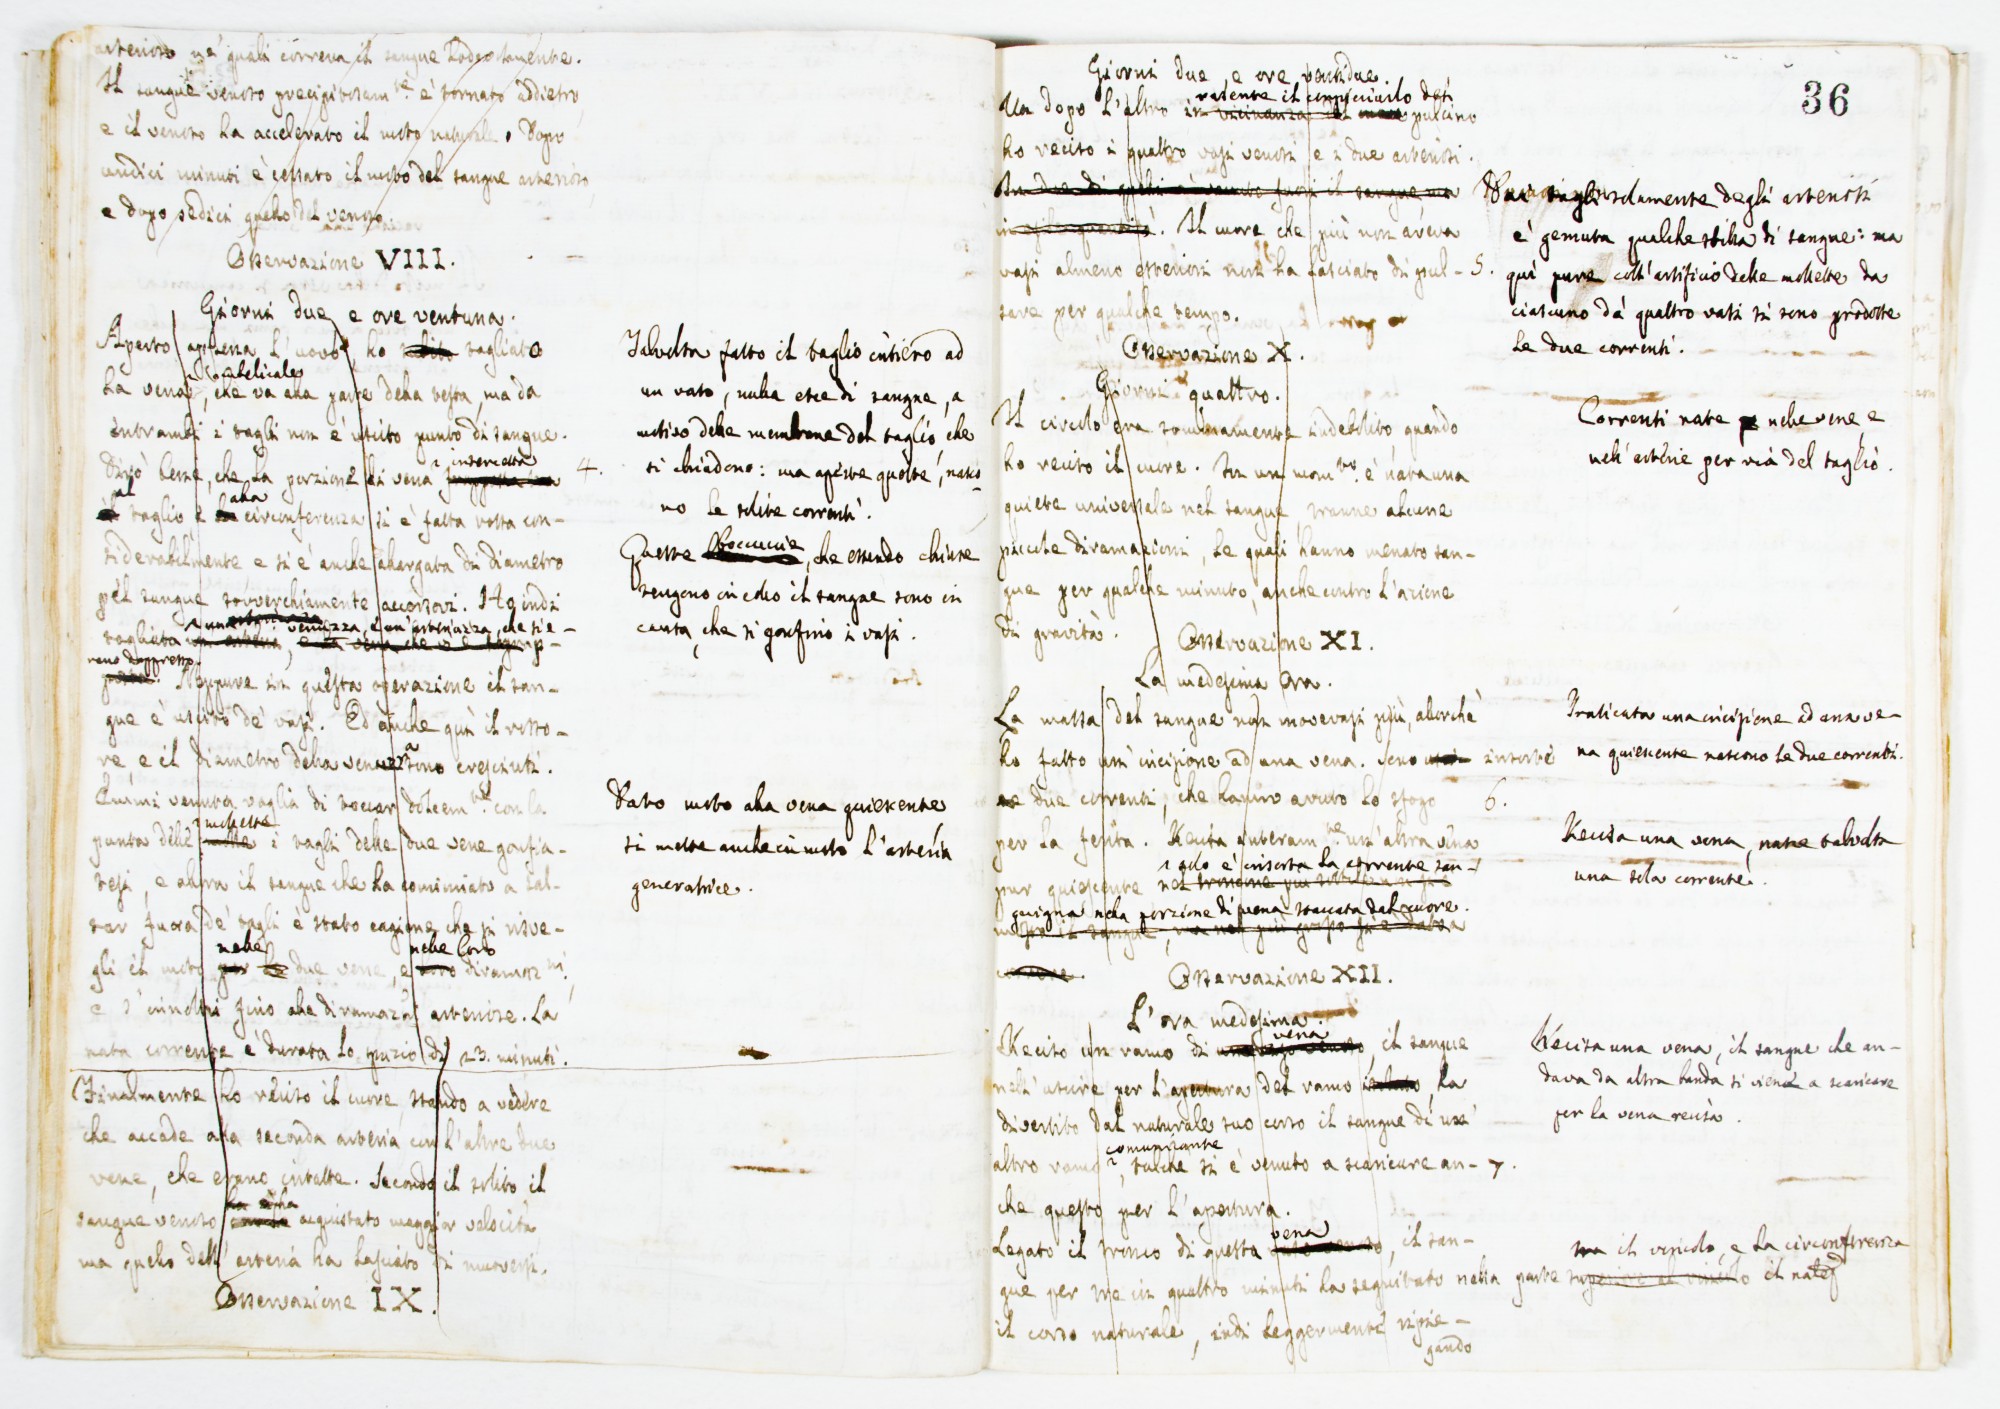 arterioso ne' quali correva il sangue lodevolmente.
Il sangue venoso precipitosam.te è tornato addietro
e il venoso ha accelerato il moto naturale. Dopo
undici minuti è cessato il moto del sangue arterioso,
e dopo sedici quello del venoso.
Osservazione VIII.
Giorni due e ore ventuna.
Aperto appena l'uovo, ho tagliato
umbelicale
la vena, che va alla parte della testa, ma da
entrambi i tagli non è uscito punto di sangue.
intercetta
Dirò bene, che la porzione di vena
al alla
taglio e circonferenza si è fatta rossa con-
siderabilmente e si è anche allargata di diametro
pel sangue soverchiamente accorsovi. Ho indi
venuzza, e un'arteriuzza, che si e-
tagliata
rano dappresso
Neppure in questa operazione il san-
gue è uscito de' vasi. Ed anche quì il rosso-
re, e il diametro della sono cresciuti.
Quinci venuta voglia di toccar dolcem.te con la
mollette
punta delle i tagli delle due vene gonfia-
tesi, e allora il sangue che ha cominciato a sal-
tar fuora de' tagli è stato cagione che si risve-
nelle nelle loro
gli il moto due vene, e diramaz.ni,
e s'innoltri fino alle diramaz.ni arteriose. La
nata corrente è durata lo spazio di 23. minuti.
Finalmente ho reciso il cuore, stando a vedere
che accade alla seconda arteria, con l'altre due
vene, che erano intatte. Secondo il solito il
sangue venoso acquistato maggior velocità
ma quello dell'arteria ha lasciato di muoversi.
Osservazione IX.
4.
Talvolta fatto il taglio intiero ad
un vaso, nulla esce di sangue, a
motivo delle membrane del taglio che
si chiudono: ma aperte queste, nasco-
no le solite correnti.
Queste boccuccie, che essendo chiuse
tengono in collo il sangue sono in
causa, che si gonfino i vasi.
Dato moto alla vena quiescente
si mette anche in moto l'arteria
generatrice.
36
Giorni due, e ore ventidue.
rasente il corpicciuolo del
Un dopo l'altro in vicinanza pulcino
ho reciso i quattro vasi venosi e i due arteriosi.
In due di quelli è venuto fuori il sangue ma
Il cuore che più non aveva
vasi almeno esteriori non ha lasciato di pul-
sare per qualche tempo.
Osservazione X.
Giorni quattro.
Il circolo era sommamente indebolito quando
ho reciso il cuore. In un mom.to è nata una
quiete universale nel sangue, tranne alcune
piccole diramazioni, le quali hanno menato san-
gue per qualche minuto, anche contro l'azione
di gravità.
Osservazione XI.
La medesima ora.
La massa del sangue non movevasi più, allorchè
ho fatto un'incisione ad una vena. Sono insorte
due correnti, che hanno avuto lo sfogo
per la ferita. Recisa interam.te un'altra vena
solo è insorta la corrente san-
pur quiescente nel troncone più
guigna nella porzione di vena staccata dal cuore.
Osservazione XII.
L'ora medesima.
vena
Reciso un ramo di, il sangue
nell'uscire per l'apertura del ramo, ha
divertito dal naturale suo corso il sangue d'un
comunicante
altro ramo, talche si è venuto a scaricare an-
che questo per l'apertura.
vena
Legato il tronco di questa, il san-
gue per tre in quattro minuti ha seguitato nella parte superiore al vincolo il
il corso naturale, indi leggermente ripie-
gando
5.
solamente degli arteriosi
è gemuta qualche stilla di sangue: ma
quì pure coll'artificio delle mollette da
ciascuno dà quattro vasi si sono prodotte
le due correnti.
Correnti nate nelle vene e
nell'arterie per via del taglio.
6.
Praticata una incisione ad una ve-
na quiescente nascono le due correnti.
Recisa una vena, nasce talvolta
una sola corrente.
Recisa una vena, il sangue che an-
dava da altra banda si viene a scaricare
per la vena recisa.
7.
tra il vincolo, e la circonferenza